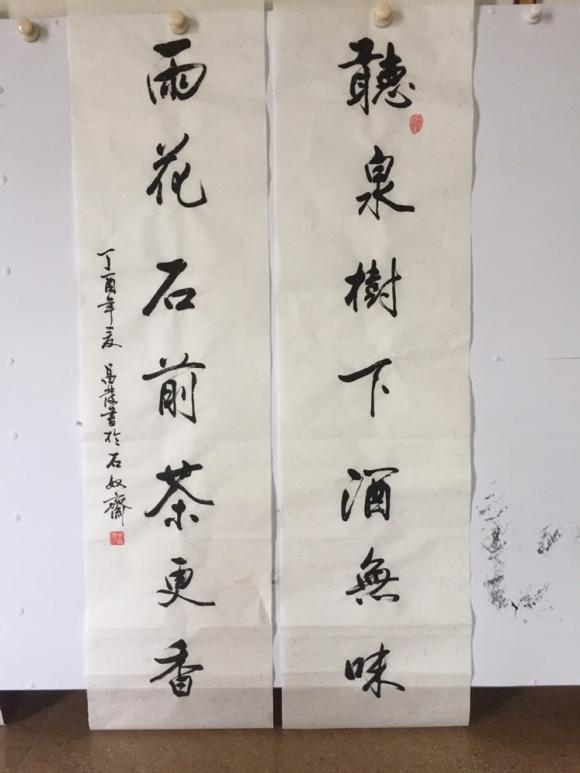 聽泉樹下酒無味
雨花石前茶更香
丁酉年夏 易發書於石奴齋